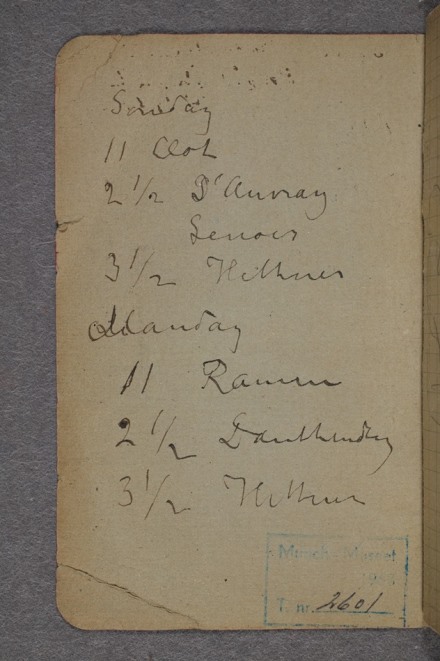 Sonday
11 Clot
2 1/2 D'Auvray
Lenoir
3 1/2 Hettner
Manday
11 Ramm
2 1/2 Dauthendey
3 1/2 Hettner
Munch-Museet
T. nr. 2601